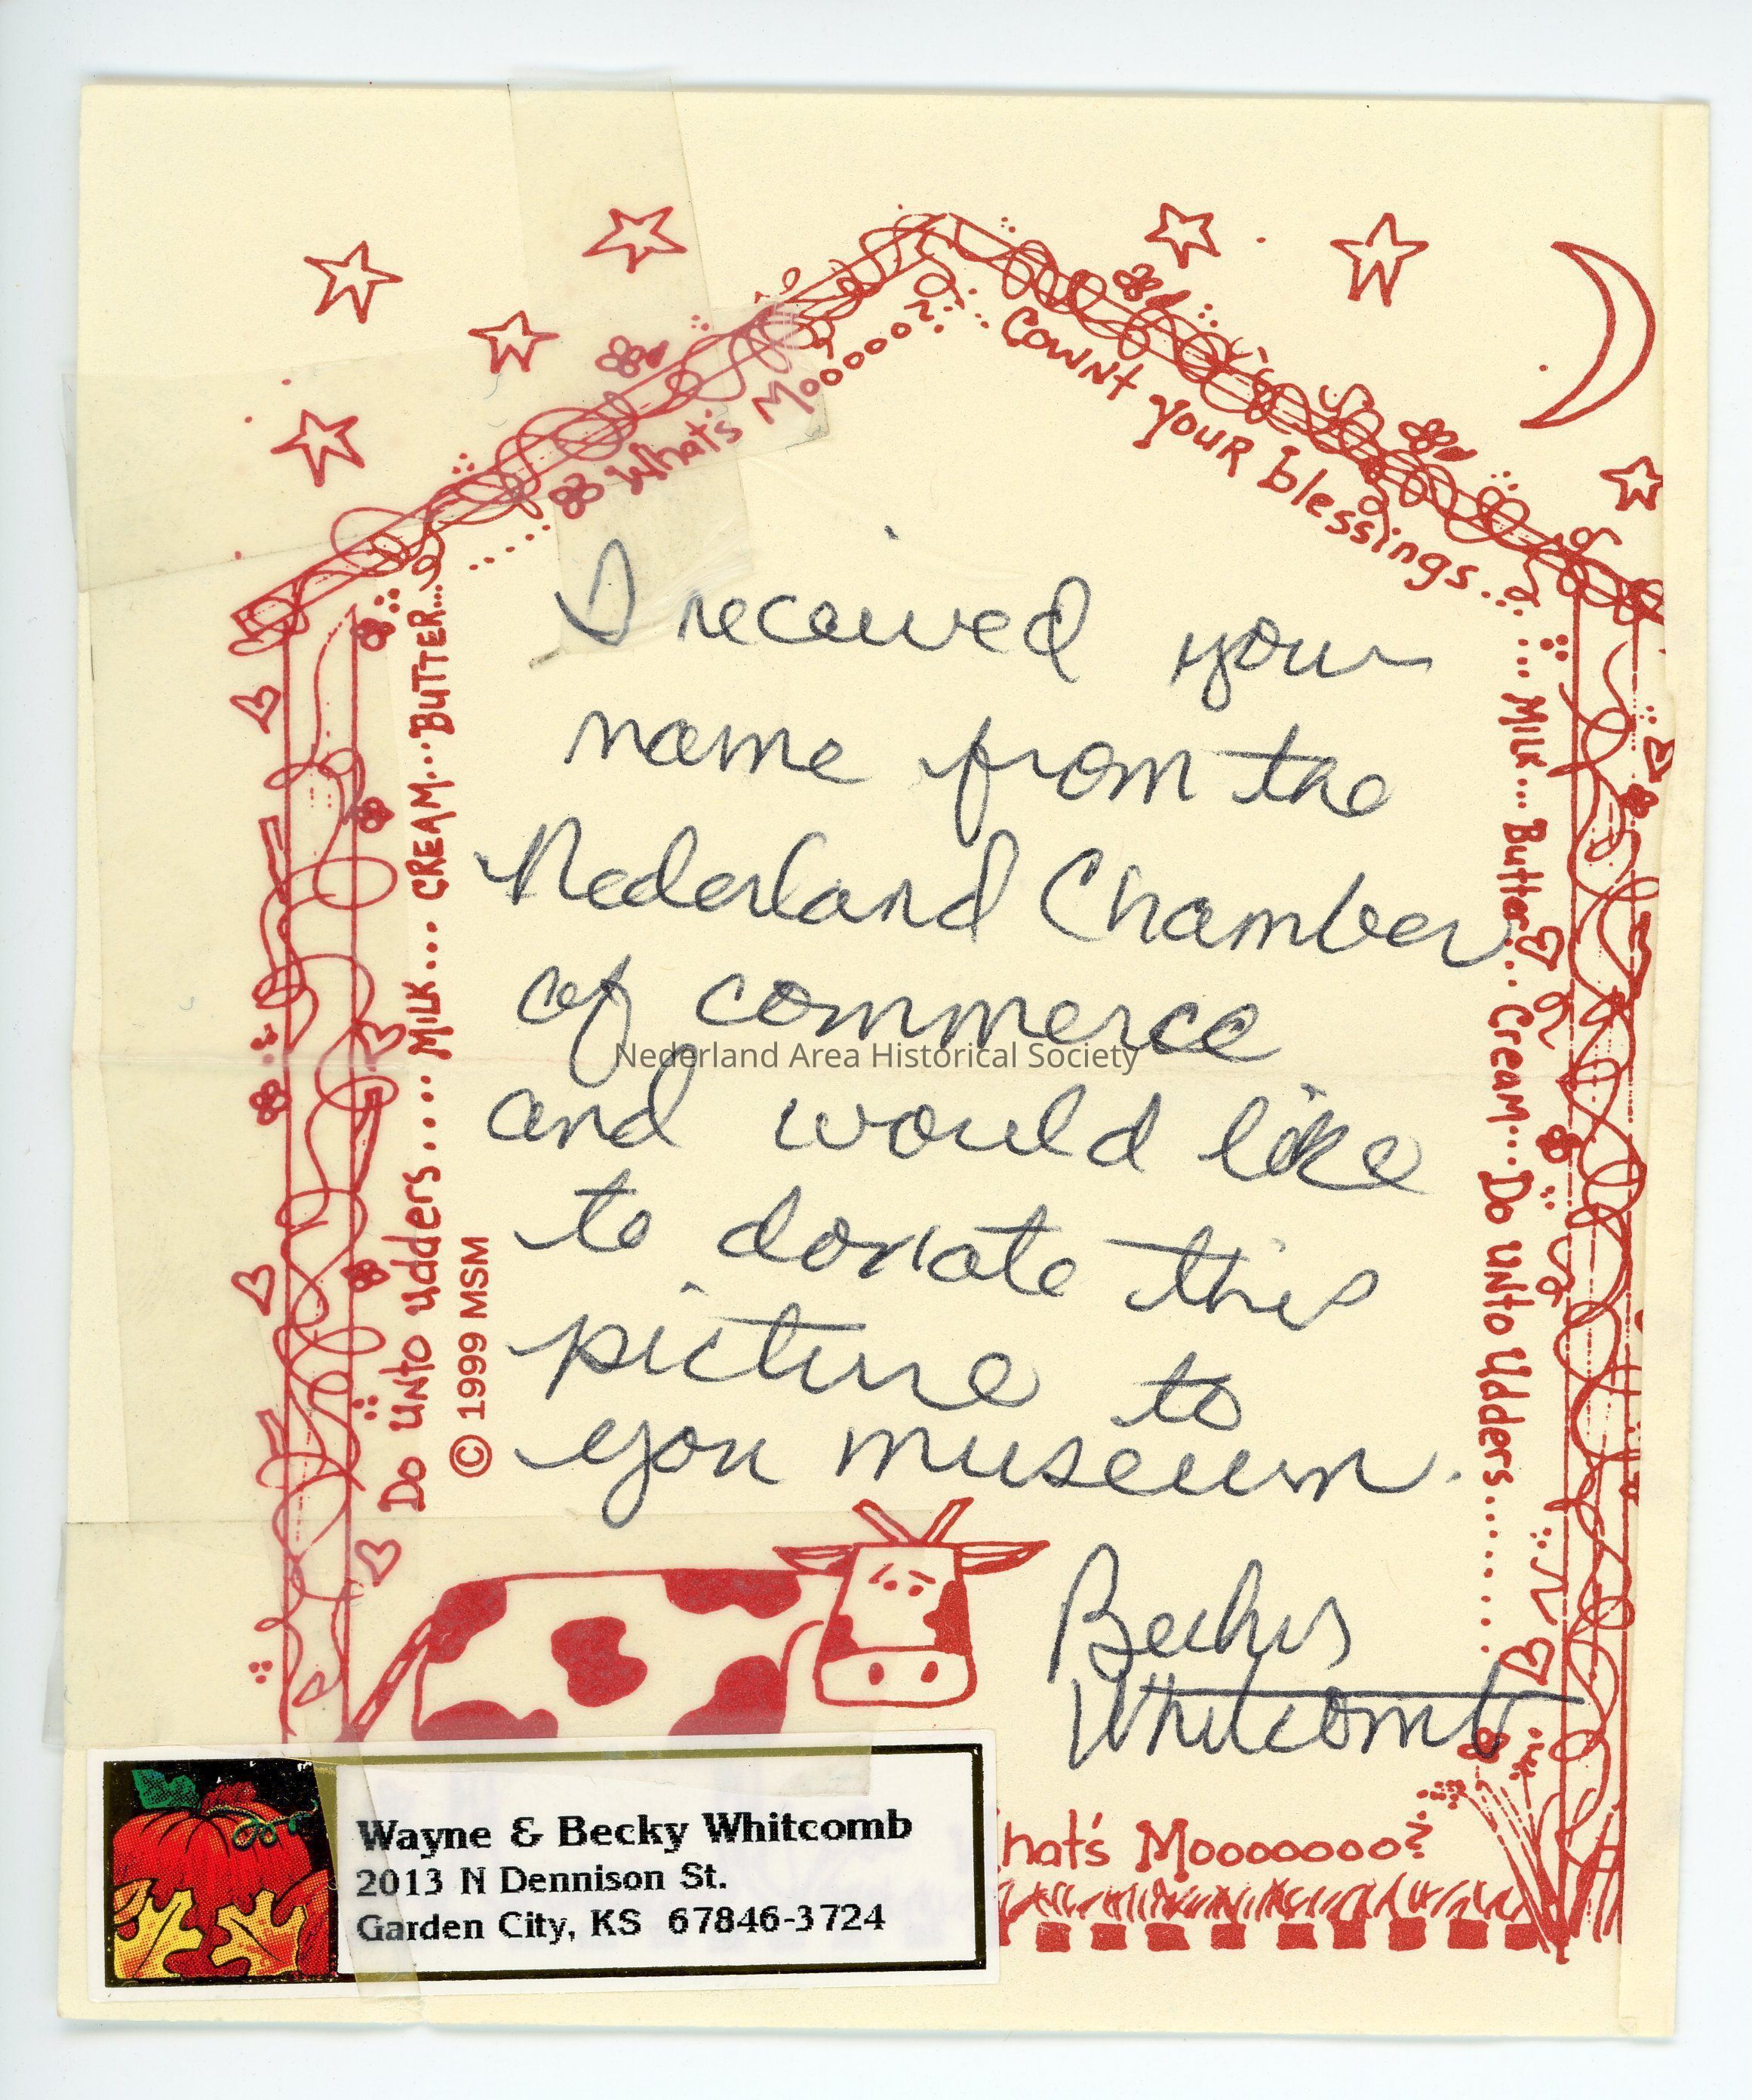 What's Mooooo?
Cownt your blessings...
Do unto udders..... Milk... CREAM... BUTTER...
... Milk... Butter... Cream... Do unto udders.......
© 1999 MSM
I received your
name from the
Nederland Chamber
of commerce
and would like
to donate this
picture to
you museum.
Becky
Whitcomb
Nederland Area Historical Society
hat's Mooooooo?
Wayne & Becky Whitcomb
2013 N Dennison St.
Garden City, KS 67846-3724